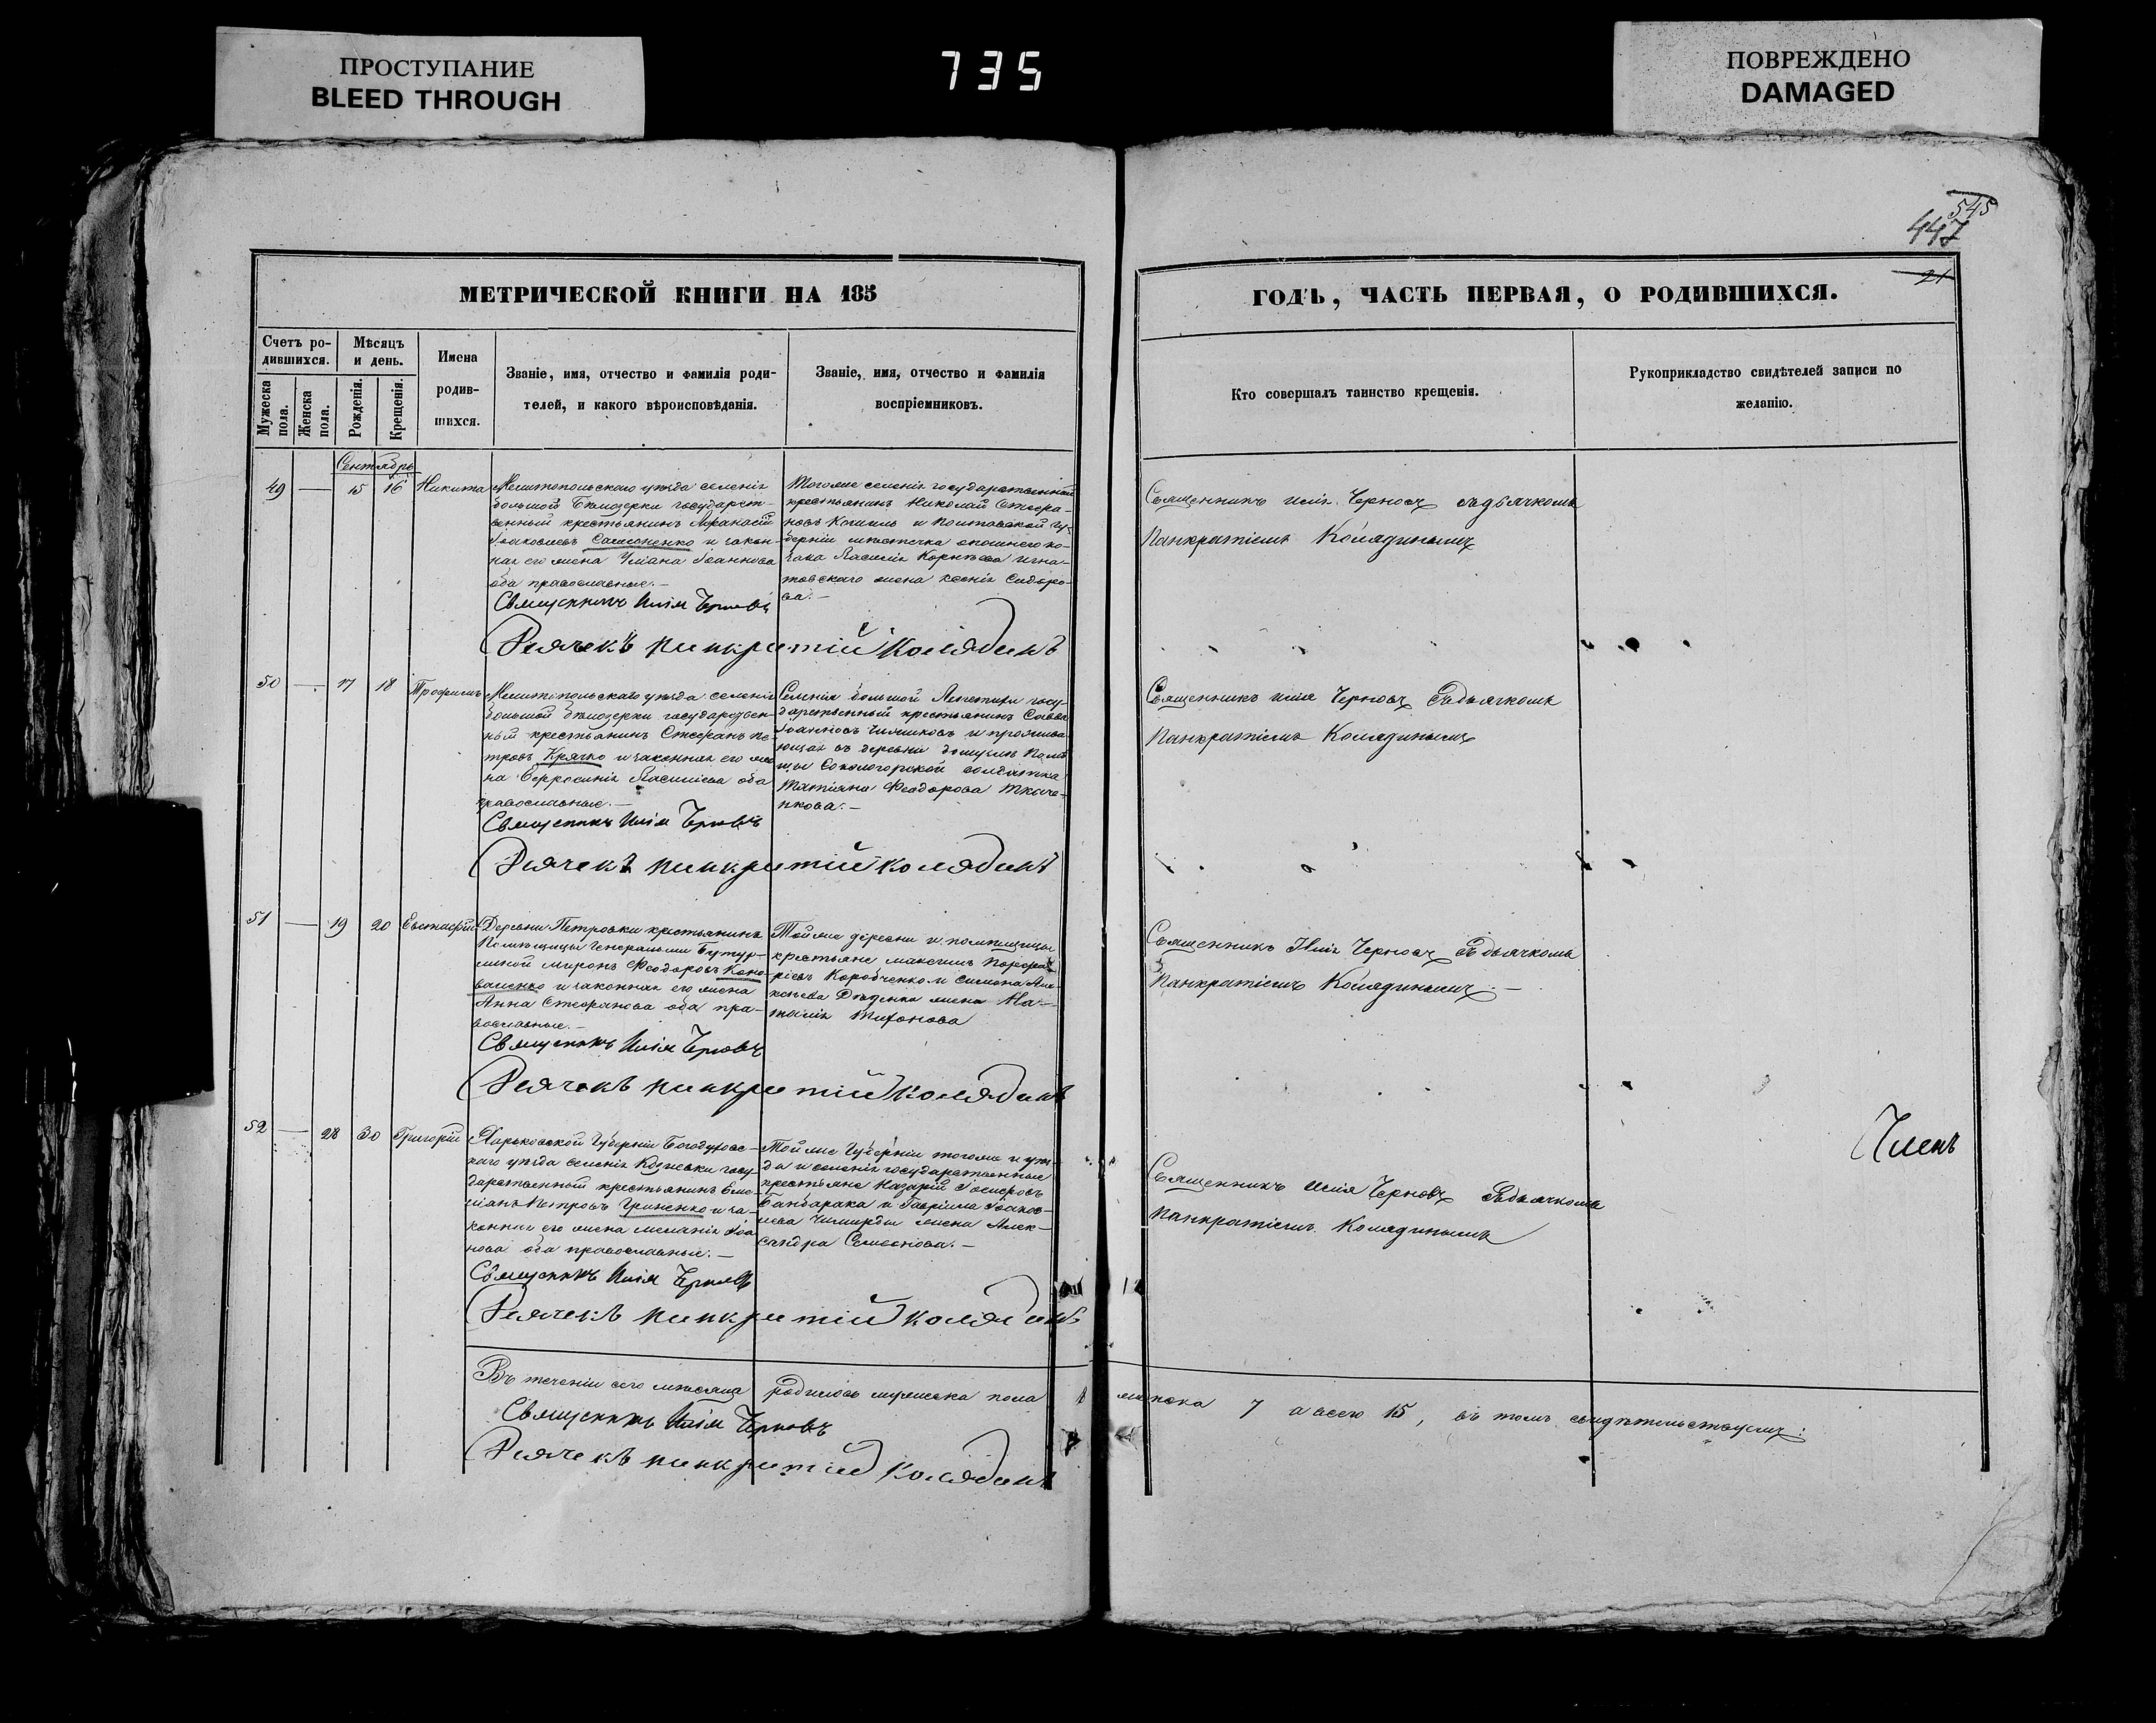 ПРОСТУПАНИЕ
BLEED THROUGH
735
ПОВРЕЖДЕНО
DAMAGED
545
447
21
МЕТРИЧЕСКОЙ КНИГИ НА 185
ГОДЪ, ЧАСТЬ ПЕРВАЯ, О РОДИВШИХСЯ.
Счетъ ро-
дившихся.
Мужеска
пола.
Женска
пола.
Мѣсяцъ
и день.
Рожденія.
Крещенія.
Имена
родив-
шихся.
Званіе, имя, отчество и фамилія роди-
телей, и какого вѣроисповѣданія.
Званіе, имя, отчество и фамилія
воспріемниковъ.
Кто совершалъ таинство крещенія.
Рукоприкладство свидѣтелей записи по
желанію.
Сентябрь
49 — 15 16 Никита
Мелитопольскаго уѣзда селенія
большой Бѣлозерки государст-
венный крестьянинъ Афанасій
Іаковлевъ Самсоненко и закон-
ная его жена Уліана Іоаннова
оба православные.—
Священникъ Илія Черновъ
Дячекъ Панкратій Колядинъ
Тогоже селенія государственный
крестьянинъ Николай Стефа-
новъ и Полтавской гу-
берніи мѣстечка ко-
зака Василія Корнѣева Игна-
товскаго жена Ксенія Сидоро-
ва.—
Священникъ Илія Черновъ съ дьячкомъ
Панкратіемъ Колядинымъ
50 — 17 18 Трофимъ
Мелитопольскаго уѣзда селенія
большой Бѣлозерки государствен-
ный крестьянинъ Стефанъ Пе-
тровъ Крячко и законная его же-
на Евфросинія Василіева оба
православные.—
Священникъ Илія Черновъ
Дячекъ Панкратій Колядинъ
Селенія большой Лепетихи госу-
дарственный крестьянинъ Савва
Іоанновъ и прожива-
ющая въ деревни помѣ-
щицы солдатка
Татіана Феодорова Ткаче-
нкова.—
Священникъ Илія Черновъ съ дьячкомъ
Панкратіемъ Колядинымъ
51 — 19 20 Евстафій
Деревни Петровки крестьянинъ
Помѣщицы Генеральши Бутур-
линой Миронъ Феодоровъ Коно-
валенко и законная его жена
Анна Стефанова оба пра-
вославные.—
Священникъ Илія Черновъ
Дячекъ Панкратій Колядинъ
Тойже деревни и помѣщицы
крестьяне Максимъ Порфи-
ріевъ Коробченко и Симона
жена На-
талія Тихонова
Священникъ Илія Черновъ съ дьячкомъ
Панкратіемъ Колядинымъ.—
52 — 28 30 Григорій
Харьковской Губерніи Богодухов-
скаго уѣзда селенія госу-
дарственный крестьянинъ Еме-
ліанъ Петровъ Гриненко и за-
конная его жена Меланія
нова оба православные.—
Священникъ Илія Черновъ
Дячекъ Панкратій Колядинъ
Тойже Губерніи тогоже и уѣз-
да и селенія государственные
крестьяне Назарій
Бандарака и Гавріила Іаков-
лева жена Алек-
сандра Семенова.—
Священникъ Илія Черновъ съ дьячкомъ
Панкратіемъ Колядинымъ
Членъ
Въ теченіи сего мѣсяца родилось мужеска пола женска 7 а всего 15, въ томъ свидѣтельствуемъ:
Священникъ Илія Черновъ
Дячекъ Панкратій Колядинъ